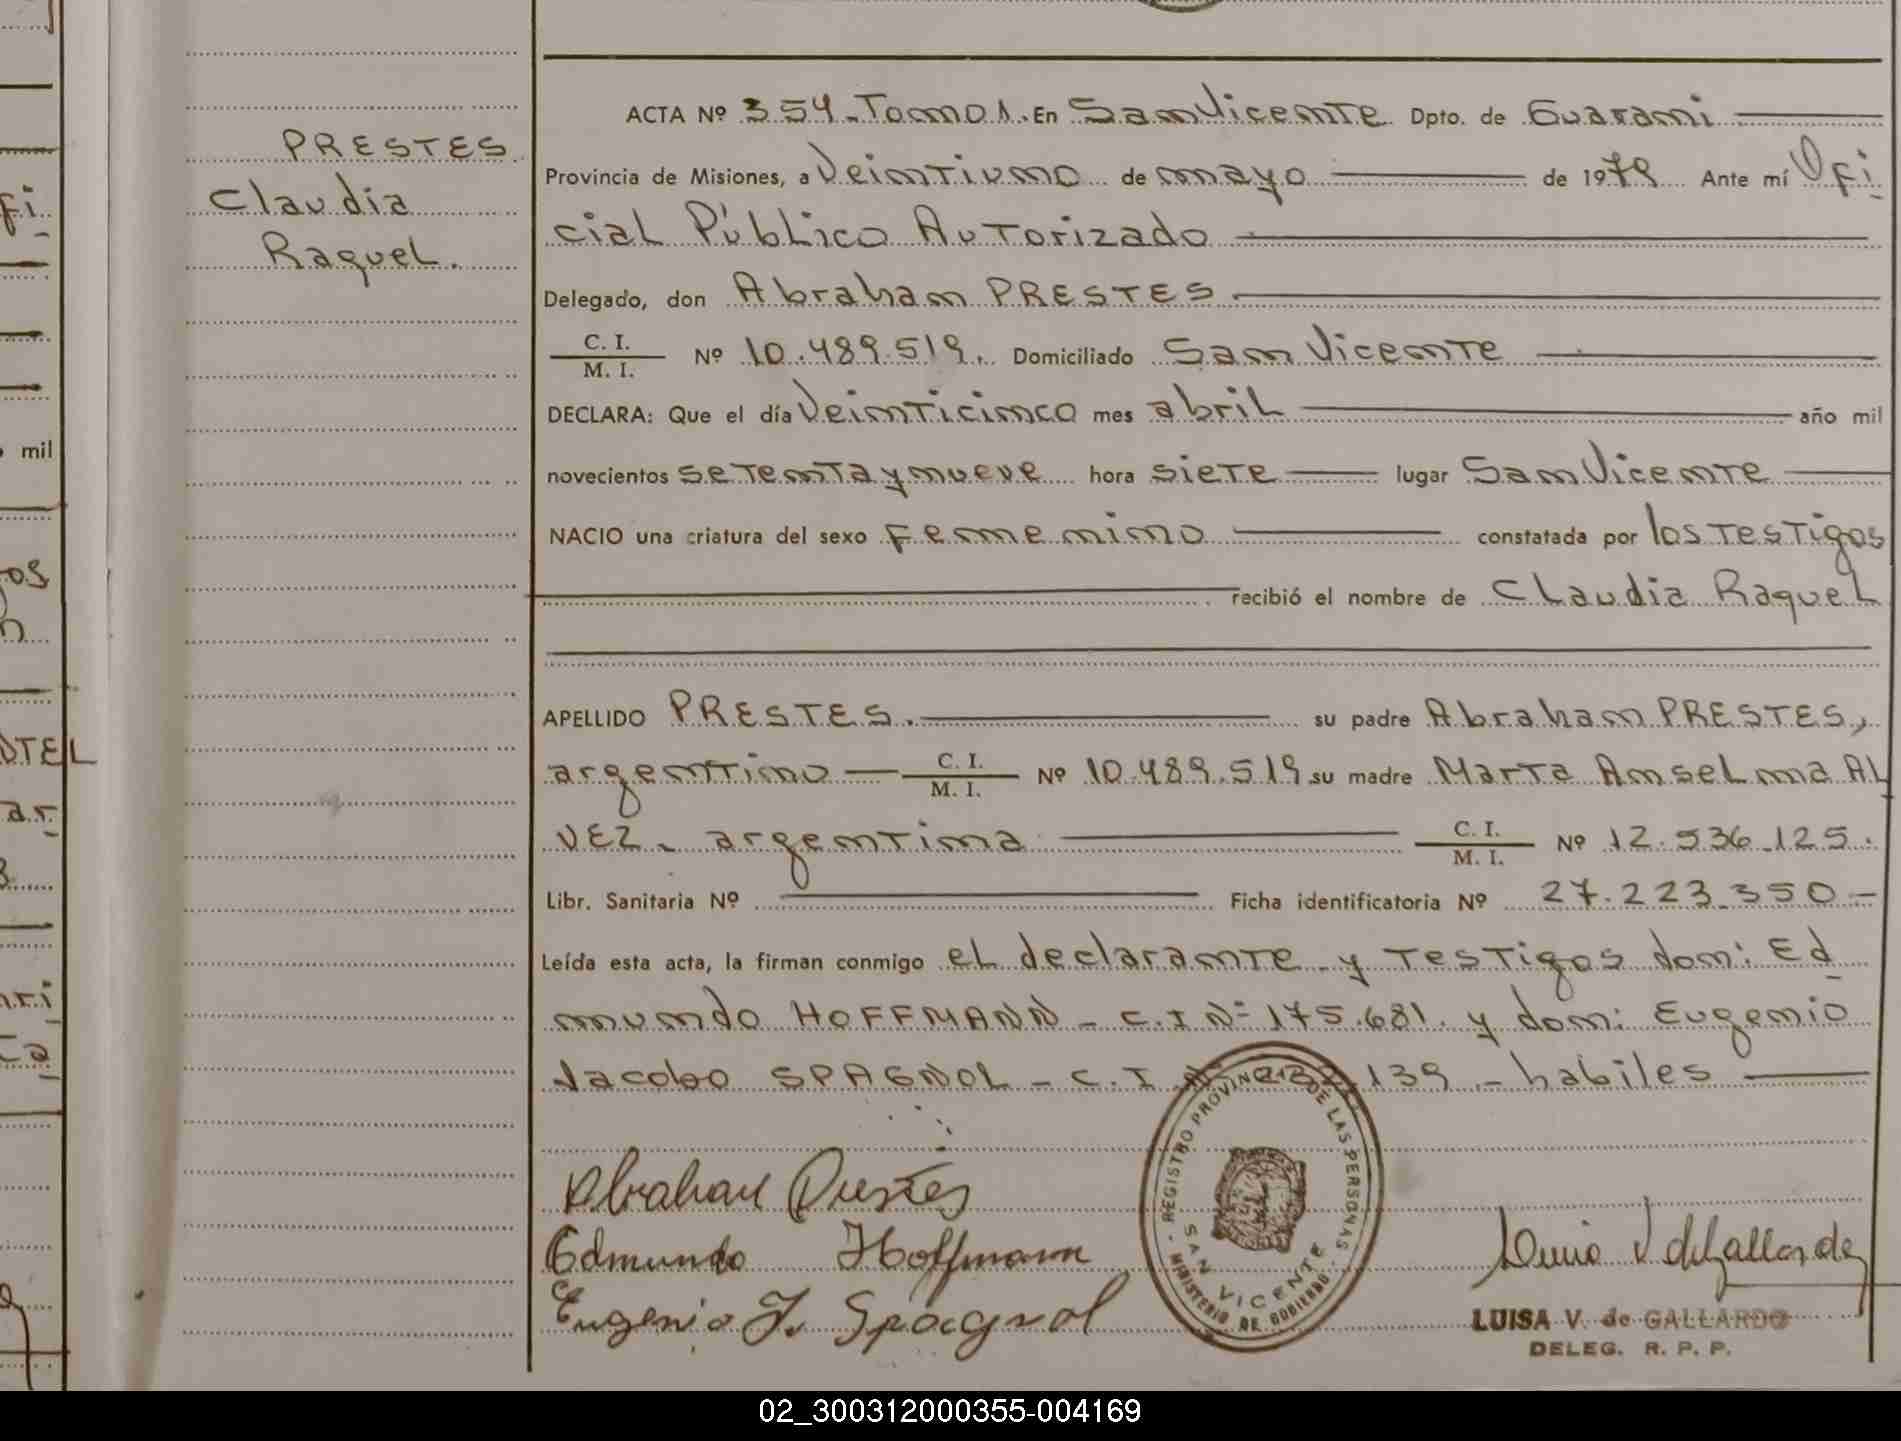 PRESTES
Claudia
Raquel.
ACTA Nº 354. Tomo 1. En San Vicente Dpto. de Guarani
Provincia de Misiones, a Veintiuno de mayo de 1979 Ante mí Ofi
cial Público Autorizado
Delegado, don Abraham PRESTES
C. I.
M. I. Nº 10.489.519. Domiciliado San Vicente
DECLARA: Que el día Veinticinco mes abril año mil
novecientos setenta y nueve hora siete lugar San Vicente
NACIO una criatura del sexo femenino constatada por los testigos
recibió el nombre de Claudia Raquel
APELLIDO PRESTES. su padre Abraham PRESTES,
argentino C. I.
M. I. Nº 10.489.519 su madre Marta Anselma AL
VEZ. argentina C. I.
M. I. Nº 12.536.125.
Libr. Sanitaria Nº Ficha identificatoria Nº 27.223.350-
Leída esta acta, la firman conmigo el declarante y testigos don: Ed
mundo HOFFMANN - C.I Nº 175.681. y don: Eugenio
Jacobo SPAGNOL - C.I 139 - habiles
Abraham Prestes
Edmundo Hoffmann
Eugenio J. Spagnol
REGISTRO PROVINCIAL DE LAS PERSONAS
SAN VICENTE
MINISTERIO DE GOBIERNO
LUISA V. de GALLARDO
DELEG. R. P. P.
02_300312000355-004169